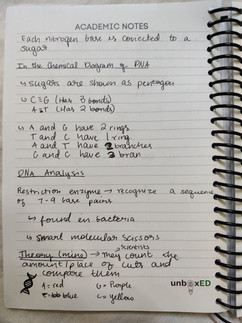 ACADEMIC NOTES
Each nitrogen base is connected to a
sugar
In the Chemical Diagram of DNA
↳ sugars are shown as pentagon
↳ C≡G (Has 3 bonds)
A=T (Has 2 bonds)
↳ A and G have 2 rings
T and C have 1 ring
A and T have 2 branches
G and C have 3 bran
DNA Analysis
Restriction enzyme → recognize a sequence
of 7-9 base pairs
↳ found in bacteria
↳ smart molecular scissors
scientists
Theory (mine) → they count the
amount/place of cuts and
compare them
A = red G = Purple
T = blue C = yellow
unboxED